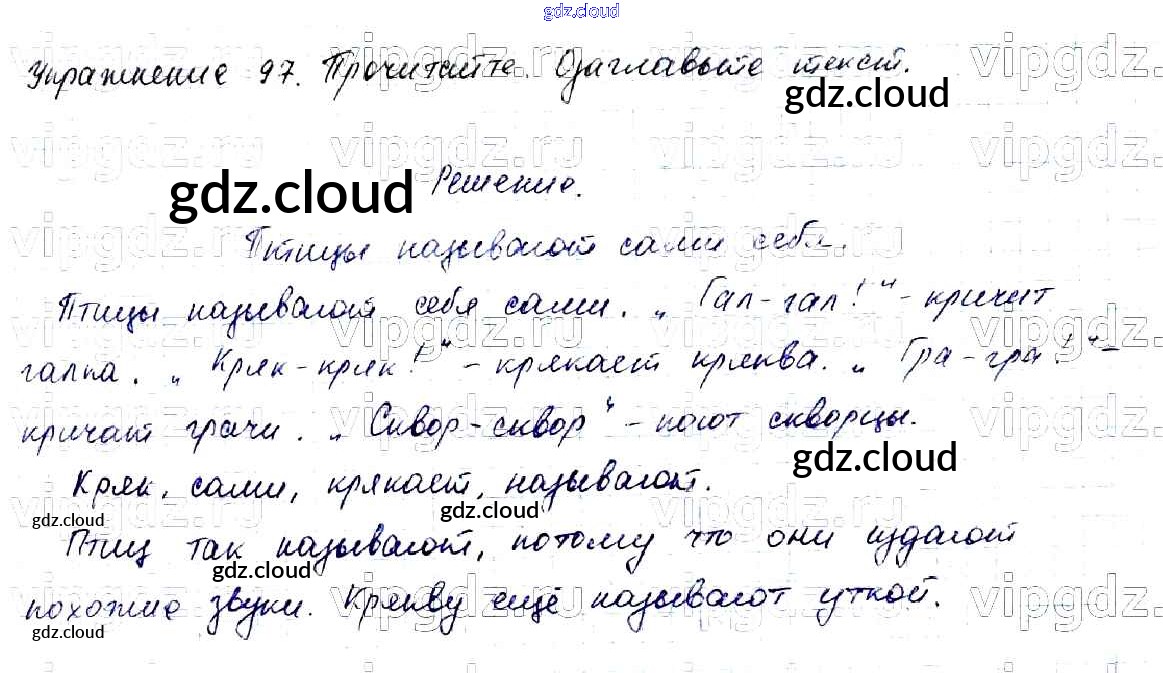 gdz.cloud
Упражнение 97. Прочитайте. Озаглавьте текст.
gdz.cloud
vipgdz.ru vipgdz.ru vipgdz.ru vipgdz.
gdz.cloud Решение.
Птицы называют сами себя.
Птицы называют себя сами. „Гал-гал!“ - кричит
галка. „Кряк-кряк!“ - крякает кряква. „Гра-гра!“ -
кричат грачи. „Сквор-сквор“ - поют скворцы.
gdz.cloud
Кряк, сами, крякает, называют.
gdz.cloud gdz.cloud
Птиц так называют, потому что они издают
gdz.cloud
похожие звуки. Крякву ещё называют уткой.
gdz.cloud